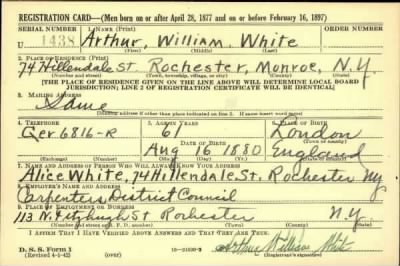 REGISTRATION CARD—(Men born on or after April 28, 1877 and on or before February 16, 1897)
SERIAL NUMBER 1. NAME (Print) ORDER NUMBER
U 1438 Arthur, William, White
(First) (Middle) (Last)
2. PLACE OF RESIDENCE (Print)
74 Hillendale St. Rochester, Monroe, N.Y
(Number and street) (Town, township, village, or city) (County) (State)
[THE PLACE OF RESIDENCE GIVEN ON THE LINE ABOVE WILL DETERMINE LOCAL BOARD
JURISDICTION; LINE 2 OF REGISTRATION CERTIFICATE WILL BE IDENTICAL]
3. MAILING ADDRESS
Same
(Mailing address if other than place indicated on line 2. If same insert word same)
4. TELEPHONE 5. AGE IN YEARS 6. PLACE OF BIRTH
Gen 6816-R 61 London
DATE OF BIRTH (Town or county)
Aug 16 1880 England
(Exchange) (Number) (Mo.) (Day) (Yr.) (State or country)
7. NAME AND ADDRESS OF PERSON WHO WILL ALWAYS KNOW YOUR ADDRESS
Alice White, 74 Hillendale St, Rochester NY
8. EMPLOYER'S NAME AND ADDRESS
Carpenters District Council
9. PLACE OF EMPLOYMENT OR BUSINESS
113 N. Fitzhugh St Rochester N.Y
(Number and street or R. F. D. number) (Town) (County) (State)
I AFFIRM THAT I HAVE VERIFIED ABOVE ANSWERS AND THAT THEY ARE TRUE.
D. S. S. Form 1
(Revised 4-1-42) (over) Arthur William White
(Registrant's signature)